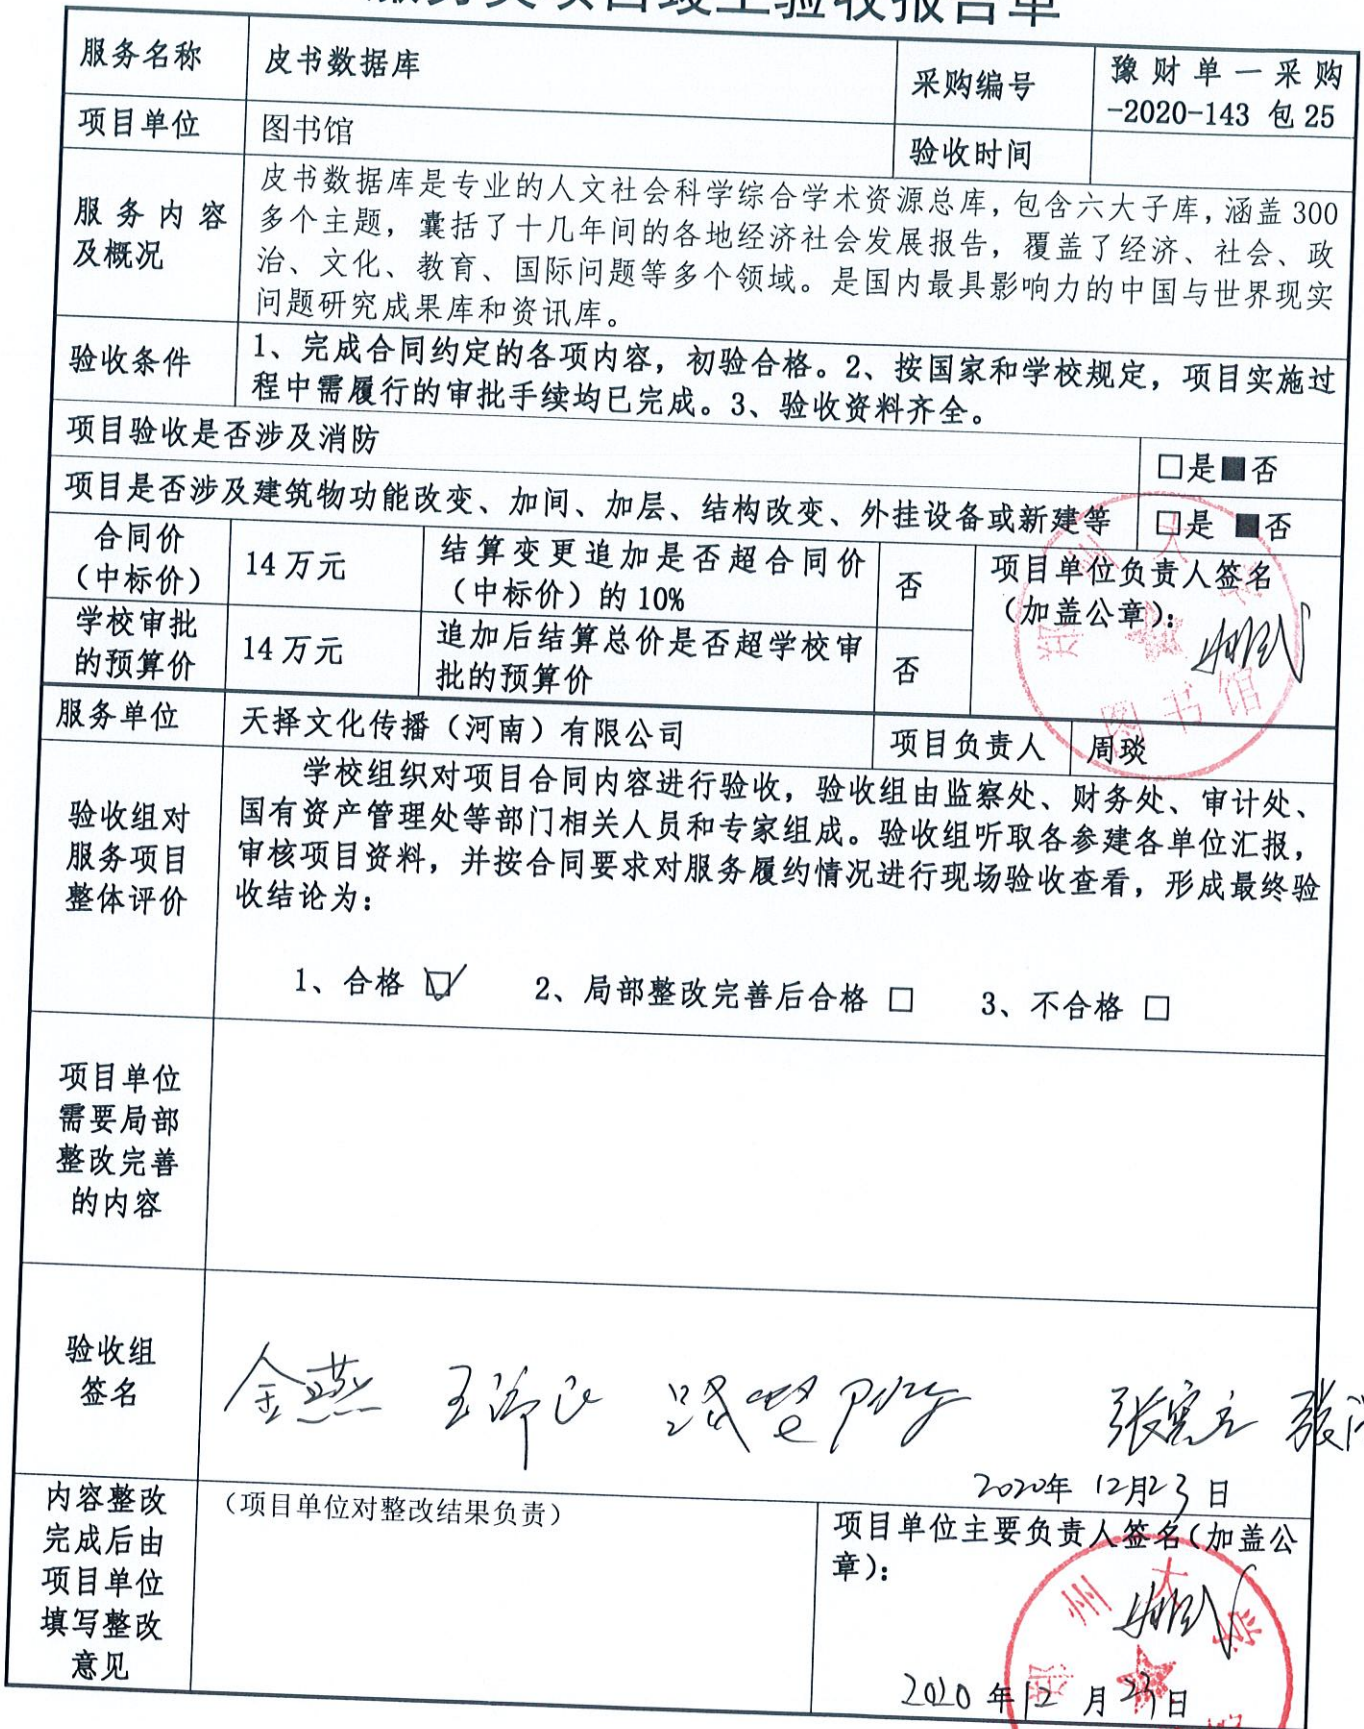 服务类项目竣工验收报告单
服务名称
皮书数据库
采购编号
豫财单一采购
-2020-143 包25
项目单位
图书馆
验收时间
服务内容
及概况
皮书数据库是专业的人文社会科学综合学术资源总库，包含六大子库，涵盖300
多个主题，囊括了十几年间的各地经济社会发展报告，覆盖了经济、社会、政
治、文化、教育、国际问题等多个领域。是国内最具影响力的中国与世界现实
问题研究成果库和资讯库。
验收条件
1、完成合同约定的各项内容，初验合格。2、按国家和学校规定，项目实施过
程中需履行的审批手续均已完成。3、验收资料齐全。
项目验收是否涉及消防
□是■否
项目是否涉及建筑物功能改变、加间、加层、结构改变、外挂设备或新建等
□是 ■否
合同价
（中标价）
14万元
结算变更追加是否超合同价
（中标价）的10%
否
项目单位负责人签名
（加盖公章）：
学校审批
的预算价
14万元
追加后结算总价是否超学校审
批的预算价
否
郑州大学
图书馆
服务单位
天择文化传播（河南）有限公司
项目负责人
周琰
验收组对
服务项目
整体评价
学校组织对项目合同内容进行验收，验收组由监察处、财务处、审计处、
国有资产管理处等部门相关人员和专家组成。验收组听取各参建各单位汇报，
审核项目资料，并按合同要求对服务履约情况进行现场验收查看，形成最终验
收结论为：
1、合格 ☑ 2、局部整改完善后合格 □ 3、不合格 □
项目单位
需要局部
整改完善
的内容
验收组
签名
金燕
2020年 12月23日
内容整改
完成后由
项目单位
填写整改
意见
（项目单位对整改结果负责）
项目单位主要负责人签名（加盖公
章）：
郑州大学
2020年12月23日